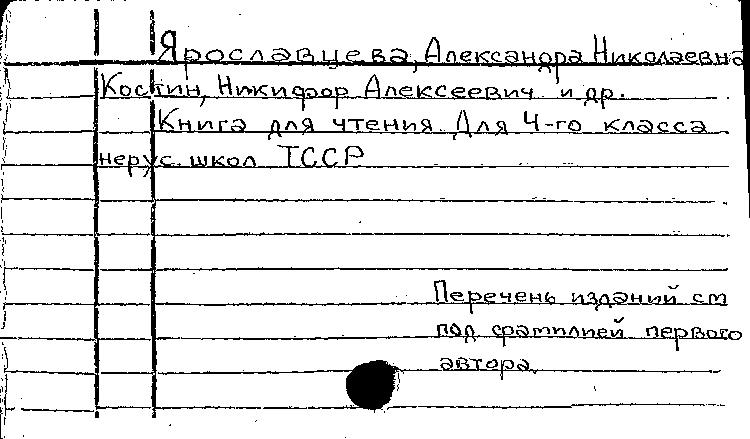 Ярославцева, Александра Николаевна
Костин, Никифор Алексеевич и др.
Книга для чтения. Для 4-го класса
нерус. школ ТССР
Перечень изданий см
под фамилией первого
автора.